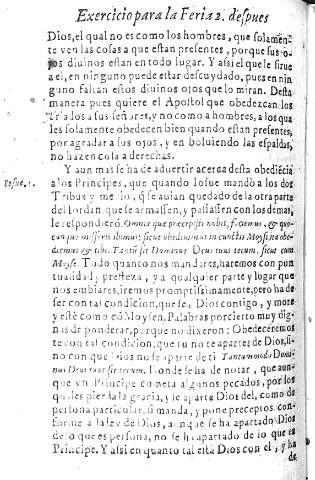 Exercicio para la Feria 2. despues
Dios, el qual no es como los hombres, que solamen-
te ven las cosas a que estan presentes, porque sus o-
jos diuinos estan en todo lugar. Y assi el que le sirue
a el, en ninguno puede estar descuydado, pues en nin
guno faltan estos diuinos ojos que lo miran. Desta
manera pues quiere el Apostol que obedezcan los
a los a sus señores, y no como a hombres, a los qua
les solamente obedecen bien quando estan presentes,
por agradar a sus ojos, y en boluiendo las espaldas,
no hazen cosa a derechas.
Y aun mas se ha de aduertir acerca desta obediécia
a los Principes, que quando Iosue mandò a los dos
Iosue, 1.
Tribus y medio, q̃ se auian quedado de la otra parte
del Iordan, que se armassen, y passassen con los demas,
le respondierō. Omnia quæ præcepisti nobis, faciemus, & quo-
cunque miseris ibimus; sicut obediuimus in cunctis Moysi, ita obe-
diemus & tibi. Tantū sit Dominus Deus tuus tecum, sicut cum
Moyse. Todo quanto nos mandares, haremos con pun
tualidad, y presteza, y a qualquier parte y lugar que
nos embiares, iremos promptissimamente, pero ha de
ser con tal condicion, que sea Dios contigo, y more
y estè como cō Moysen. Palabras por cierto muy dig-
nas de ponderar, porque no dixeron: Obedeceremos
te con tal condicion, que tu no te apartes de Dios, si-
no con que Dios no se aparte de ti Tantummodo Domi-
nus Deus tuus sit tecum. Donde se ha de notar, que aun-
que vn Principe cometa algunos pecados, por los
quales pierda la gracia, y se aparte Dios del, como de
persona particular, si manda, y pone preceptos con-
forme a la ley de Dios, aunque se ha apartado Dios
de lo que es persona, no se ha apartado de lo que es
Principe. Y assi en quanto tal està Dios con el, y ha
de